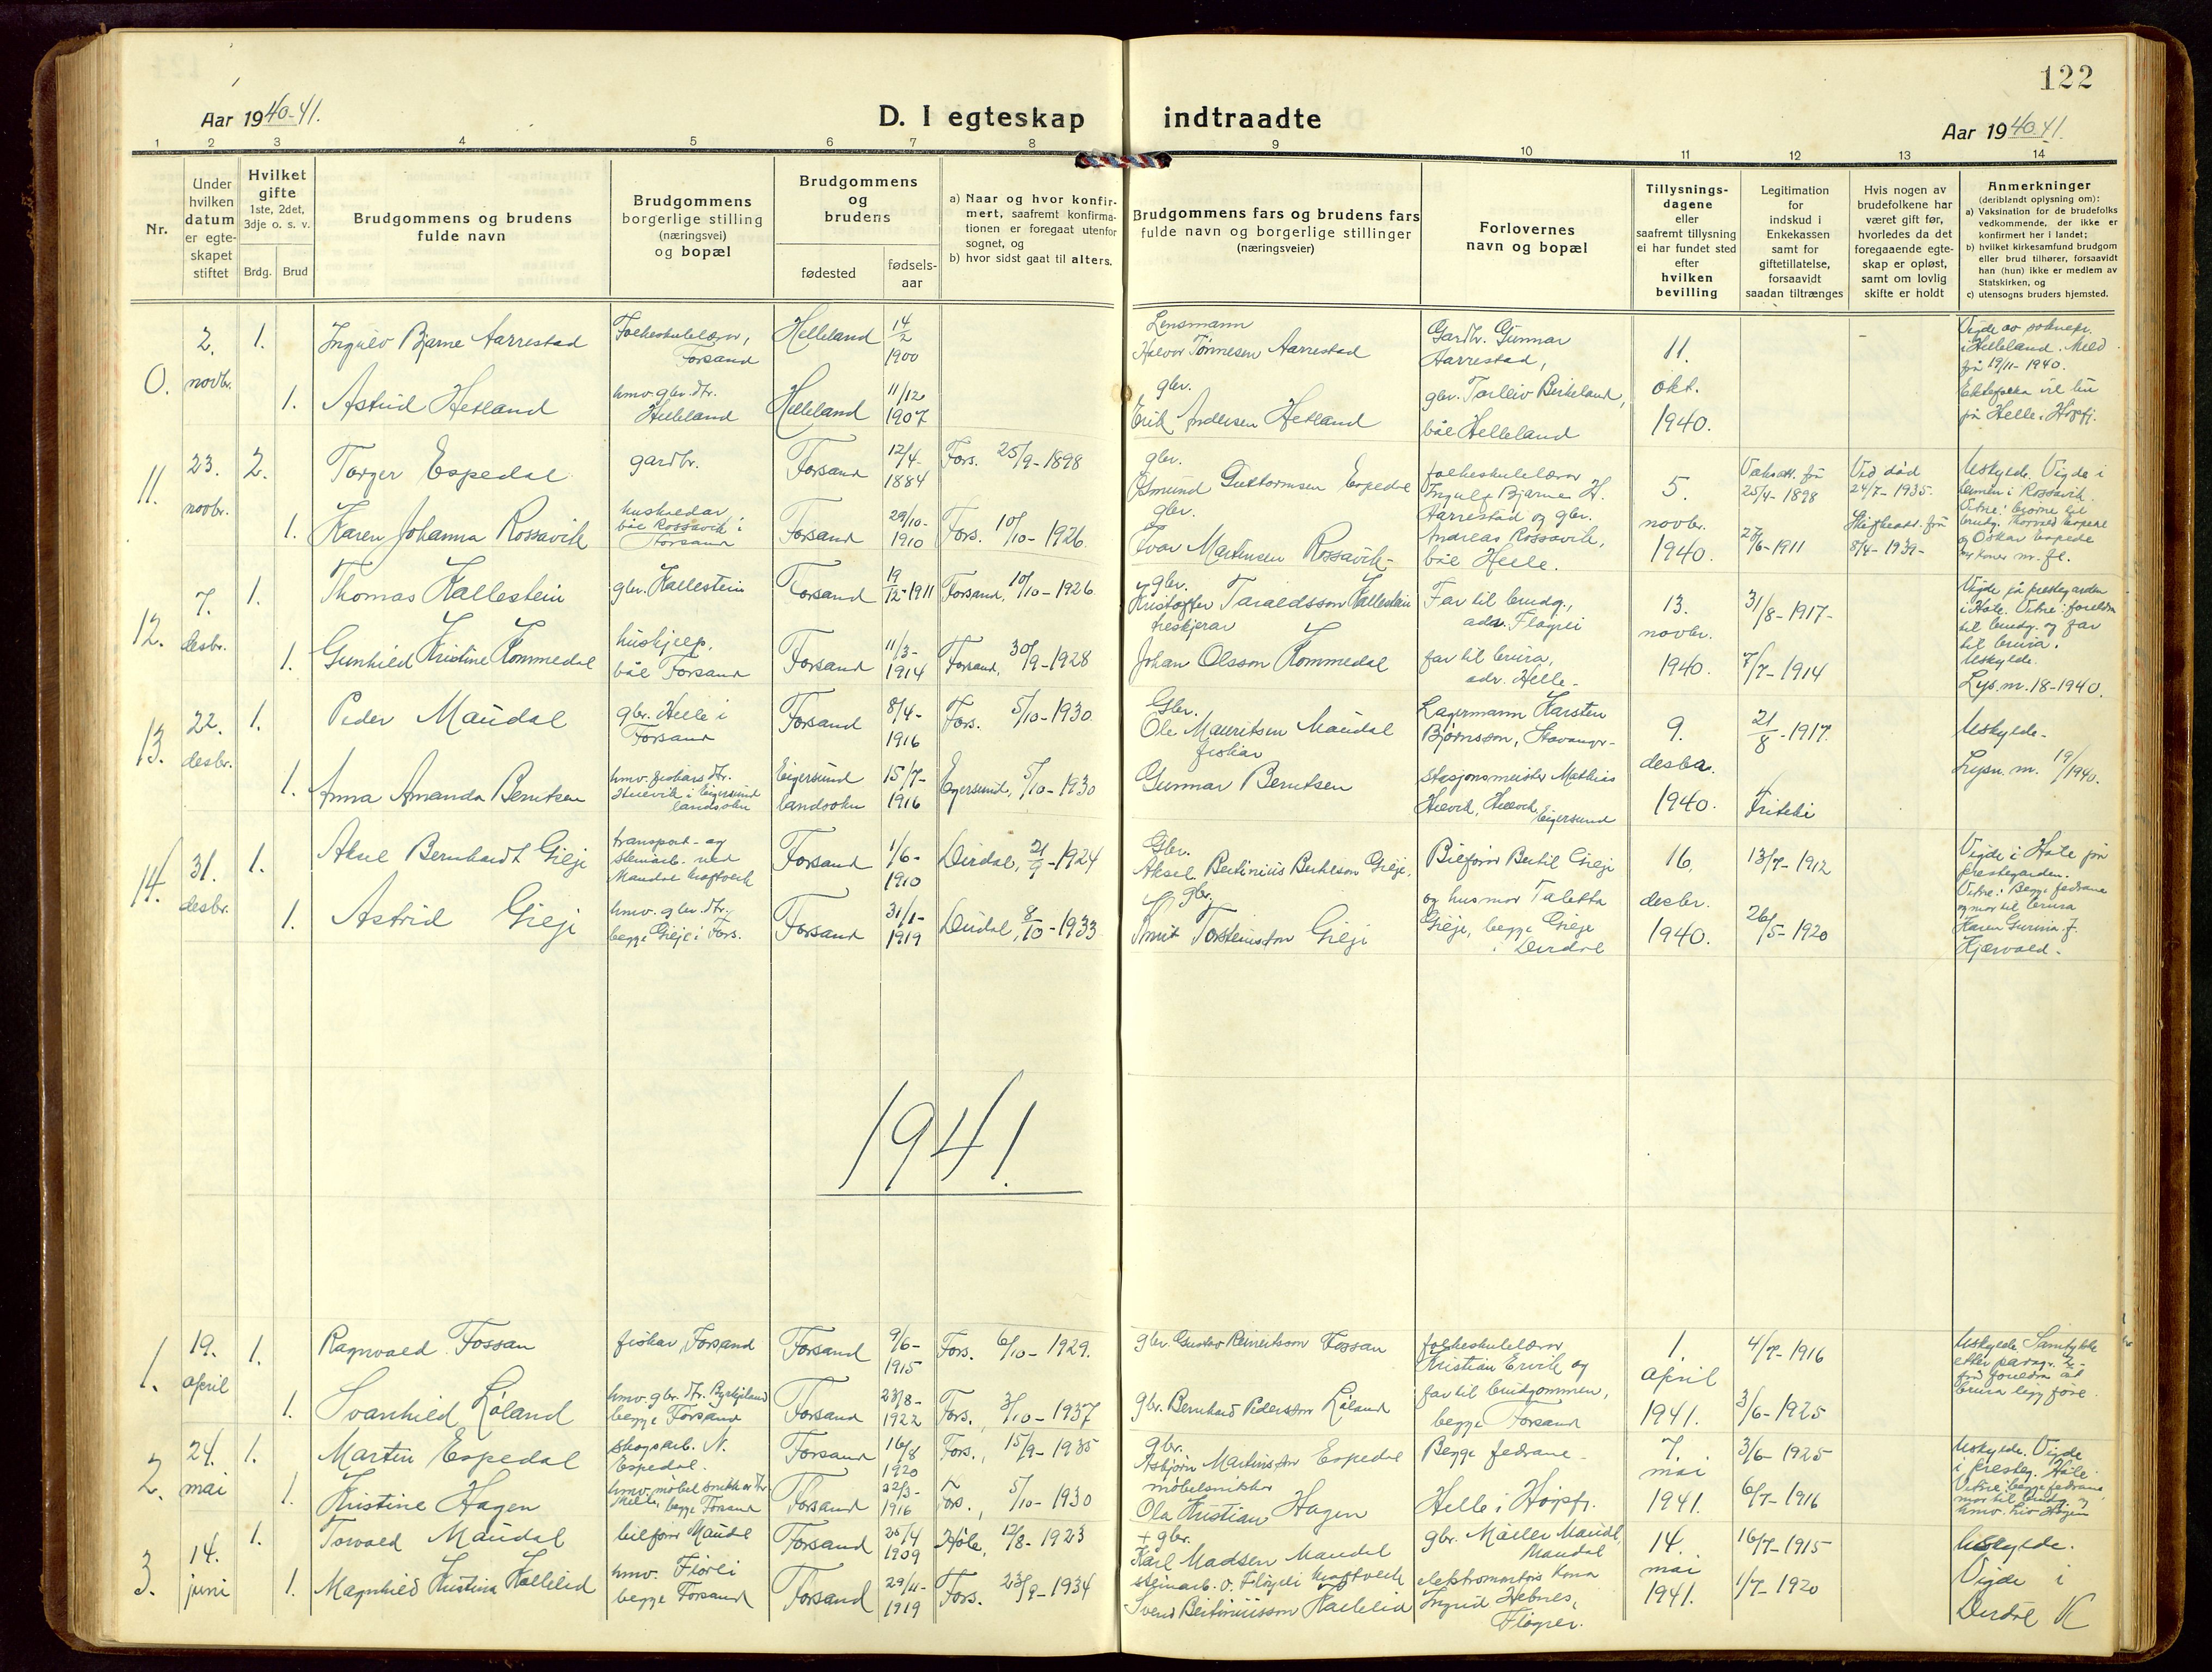 122
Aar 1940-41.
D. I egteskap indtraadte
Aar 1940.41.
1 2 3 4 5 6 7 8 9 10 11 12 13 14
Nr.
Under
hvilken
datum
er egte-
skapet
stiftet
Hvilket
gifte
1ste, 2det,
3dje o. s. v.
Brdg. Brud
Brudgommens og brudens
fulde navn
Brudgommens
borgerlige stilling
(næringsvei)
og bopæl
Brudgommens
og
brudens
fødested
fødsels-
aar
a) Naar og hvor konfir-
mert, saafremt konfirma-
tionen er foregaat utenfor
sognet, og
b) hvor sidst gaat til alters.
Brudgommens fars og brudens fars
fulde navn og borgerlige stillinger
(næringsveier)
Forlovernes
navn og bopæl
Tillysnings-
dagene
eller
saafremt tillysning
ei har fundet sted
efter
hvilken
bevilling
Legitimation
for
indskud i
Enkekassen
samt for
giftetillatelse,
forsaavidt
saadan tiltrænges
Hvis nogen av
brudefolkene har
været gift før,
hvorledes da det
foregaaende egte-
skap er opløst,
samt om lovlig
skifte er holdt
Anmerkninger
(deriblandt oplysning om):
a) Vaksination for de brudefolks
vedkommende, der ikke er
konfirmert her i landet;
b) hvilket kirkesamfund brudgom
eller brud tilhører, forsaavidt
han (hun) ikke er medlem av
Statskirken, og
c) utensogns bruders hjemsted.
0.
2.
novbr.
1.
Ingulv Bjarne Aarrestad
Folkeskulelærar,
Forsand
Helleland
14/2
1900
Lensmann
Halvor Tønnesen Aarrestad
Gardbr. Gunnar
Aarrestad,
11.
okt.
1940.
Vigde av soknepr.
i Helleland. Meld
frå 19/11-1940.
Ektefolka vil bu
på Helle i Høgsfj.
1.
Astrid Hetland
hmv. gbr. dtr.
Helleland
Helleland
11/12
1907
gbr.
Erik Andersen Hetland
gbr. Torleiv Birkeland,
båe Helleland
11.
23.
novbr.
2.
Torger Espedal
gardbr.
Forsand
12/4-
1884
Fors. 25/9-1898
gbr.
Osmund Guttormsen Espedal
folkeskulelærar
Ingulf Bjarne H.
Aarrestad og gbr.
Andreas Rossavik,
båe Helle.
5.
novbr.
1940.
Vaksatt. frå
25/4-1898
Ved død
24/7-1935.
Uskylde. Vigde i
heimen i Rossavik.
1.
Karen Johanna Rossavik
hushaldar,
båe Rossavik i
Forsand
Forsand
29/10-
1910
Fors. 10/10-1926
gbr.
Ivar Martinsen Rossavik-
27/6-1911
Skifteatt. frå
8/4-1939-
og Oskar Espedal
12.
7.
desbr.
1.
Thomas Kallestein
gbr. Kallestein
Forsand
19/12-1911
Forsand, 10/10-1926
gbr.
Kristoffer Taraldsson Kallestein
Far til brudg.,
adr. Fløyrli
13.
novbr.
1940.
31/8-1917-
Vigde på prestegarden
i Høle. Vitne: foreldra
til brudg. og far
til brura.
Uskylde.
Lys.m.18-1940.
1.
Gunhild Kristine Kommedal
huskjelp,
båe Forsand
Forsand
11/3-
1914
Forsand, 30/9-1928
Johan Olsson Kommedal
far til brura,
adr. Helle-
7/7-1914
13.
22.
desbr.
1.
Peder Maudal
gbr. Helle i
Forsand
Forsand
8/4-
1916
Fors. 5/10-1930
Gbr.
Ole Mauritsen Maudal
Lagermann Karsten
Bjørnsson, Stavanger-
9.
desbr.
1940.
21/8-1917.
Uskylde-
Lysn. m. 19/1940.
1.
Anna Amanda Berntsen
hmv. fiskars dtr.
landsokn
Eigersund
landsokn
15/7-
1916
Egersund, 5/10-1930
fiskar
Gunnar Berntsen
Stasjonsmeister Mathias
Eigersund
14.
31.
desbr.
1.
Aksel Bernhardt Gilje
transport- og
steinarb. ved
Maudal kraftverk
Forsand
1/6-
1910
Dirdal, 21/9-1924
Gbr.
Aksel Bertinius Bertelson Gilje,
Bilførar Bertil Gilje
og husmor Taletta
Gilje, begge Gilje
i Dirdal
16,
desbr.
1940.
13/7-1912
Vigde i Høle på
prestegarden.
Vitne: Begge fedrane
og mor til brura
Karen Gurina f.
Kjærvold-
1.
Astrid Gilje
hmv. gbr. dtr.,
begge Gilje i Fors.
Forsand
31/1-
1919
Dirdal, 8/10-1933
gbr.
Knut Torsteinsson Gilje
26/5-1920
1941.
1.
19.
april
1.
Ragnvald Fossan
fiskar, Forsand
Forsand
9/6-
1915
Fors. 6/10-1929.
gbr. Gustav Reinertson Fossan
folkeskulelærar
Kristian Ervik og
far til brudgommen,
begge Forsand
1.
april
1941.
4/7-1916
Uskylde. Samtykke
frå foreldra at
1.
Svanhild Løland
hmv. gbr. dtr. Byrkjeland
begge Forsand
Forsand
23/8-
1922
Fors., 3/10-1937
gbr. Bernhard Pedersson Løland
3/6-1925
2.
24.
mai
1.
Martin Espedal
skogsarb. N.
Espedal.
Forsand
16/8
1920
Fors., 15/9-1935
gbr.
Asbjørn Martinsson Espedal
Begge fedrane-
Helle i Høgsfj.
7.
mai
1941.
3/6-1925
Uskylde. Vigde
i presteg. Høle
Vitne: begge fedrane,
1.
Kristine Hagen
hmv. møbelsnikkar dtr.
Helle, begge Forsand
Forsand
22/3-
1916
Fors., 5/10-1930
møbelsnikkar
Ola Kristian Hagen
6/7-1916
3.
14.
juni
1.
Torvald Maudal
bilførar Maudal
Forsand
1909
Høle, 12/8-1923
+ gbr.
Karl Madsen Maudal
gbr. Møller Maudal,
Maudal
14.
mai
1941.
16/7-1915
Uskylde.
Vigde i
Dirdal K
1.
Magnhild Kristina Hallelid
hmv. Flørli
begge Forsand
Forsand
29/11-
1919
Fors. 23/9-1934
steinarb. v. Fløyrli kraftverk
Svend Bertiniusson Hallelid
elektromontørs kona
Ingrid Hebnes,
Fløyrli.
1/7-1920